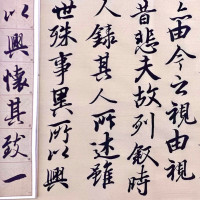 亦由今之視由視
昔悲夫故列叙時
人錄其人所述雖
世殊事異所以興
以興懷其致一